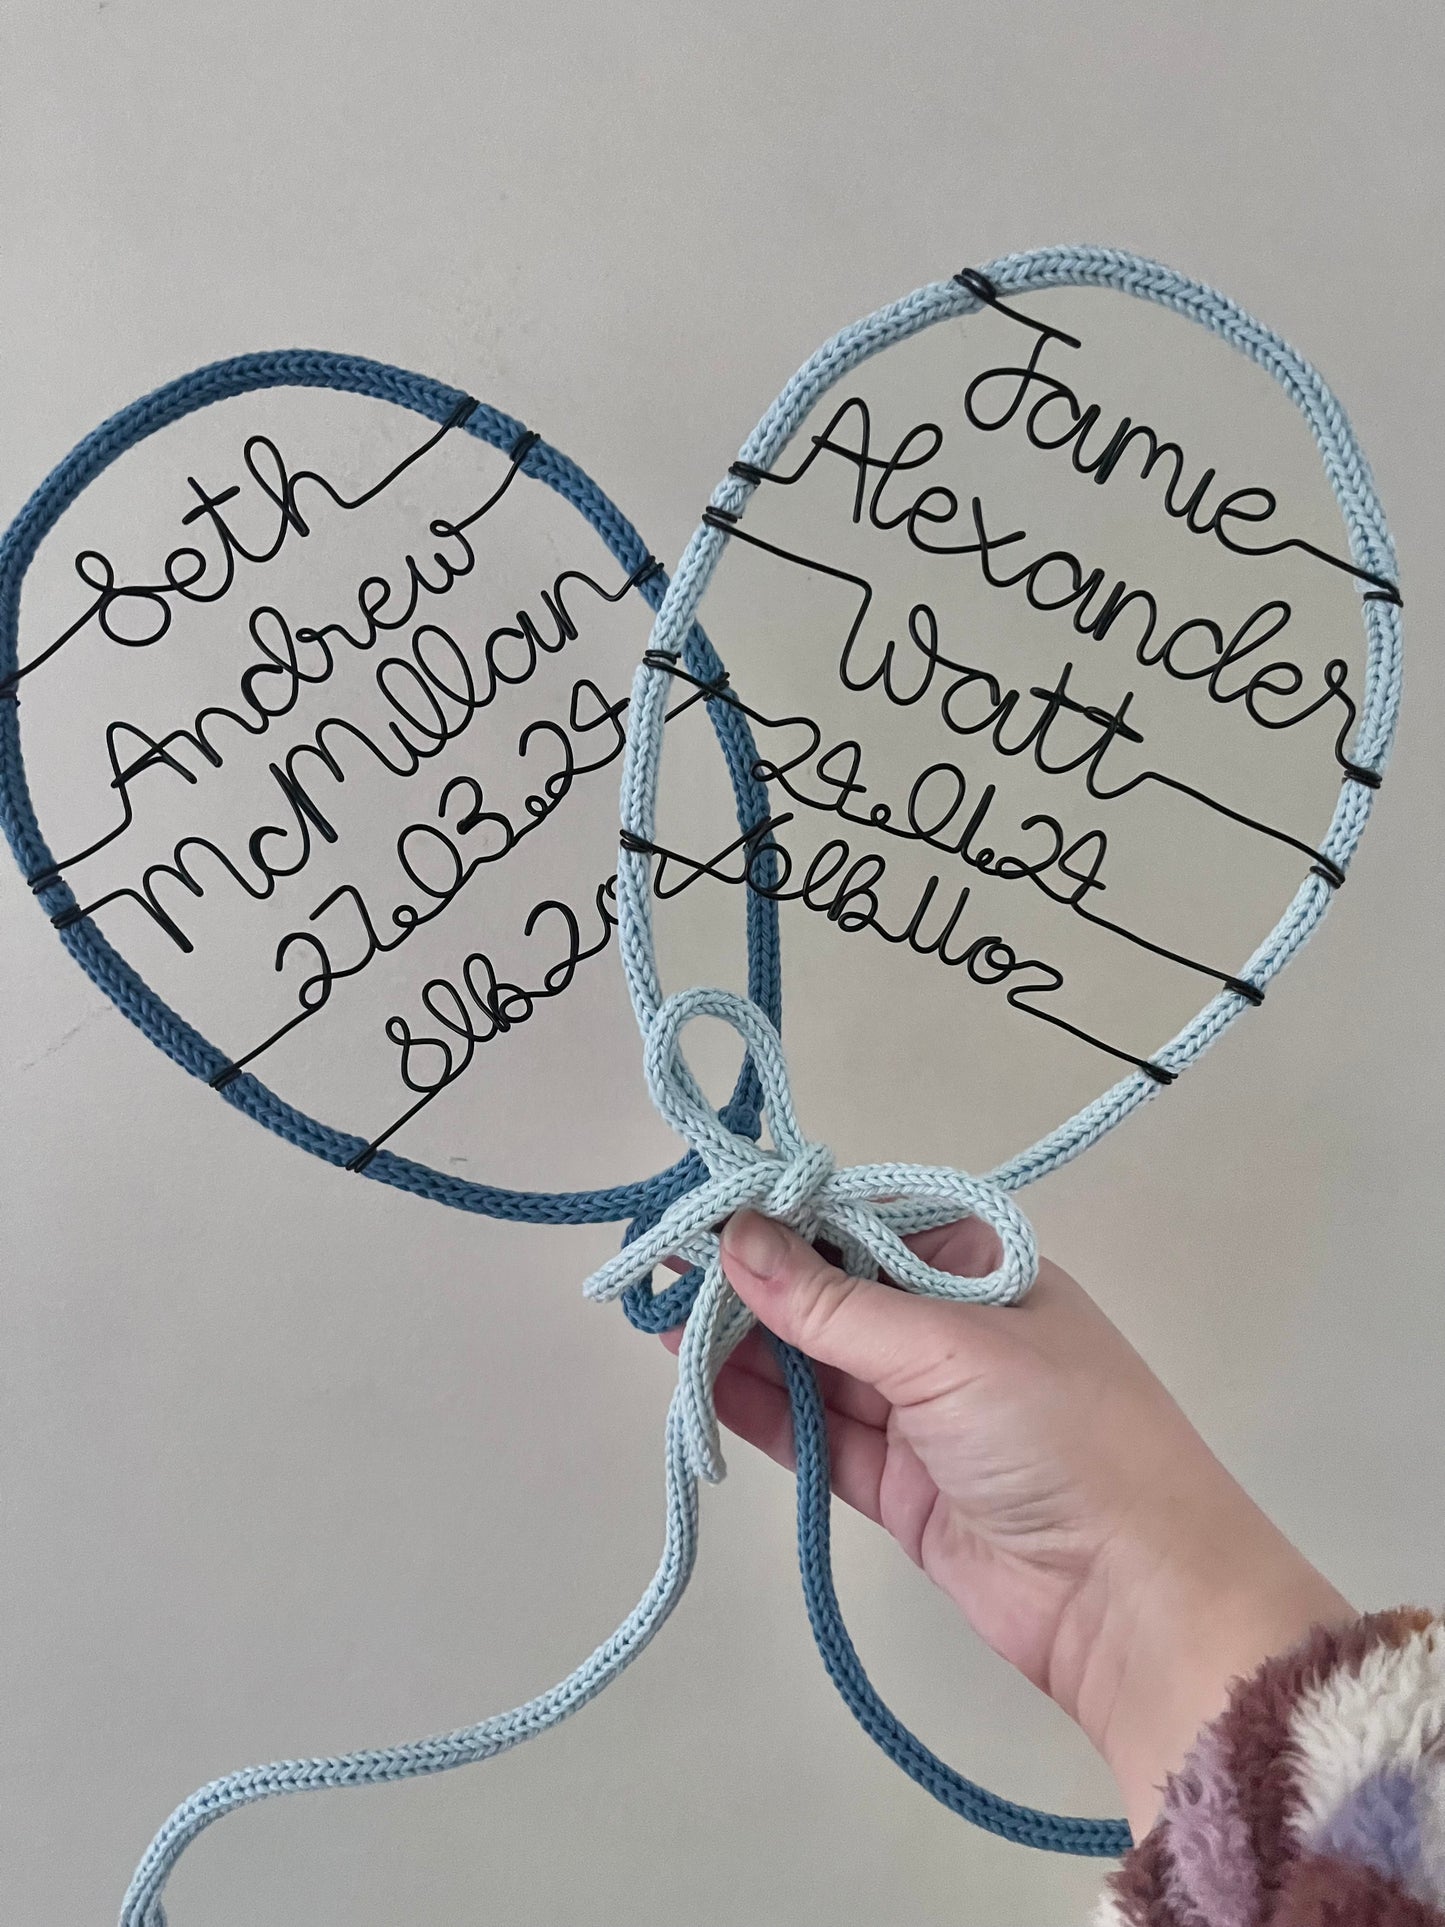 Seth
Andrew
McMillan
27.03.24
8lb2o
Jamie
Alexander
Watt
24.01.24
6lb11oz